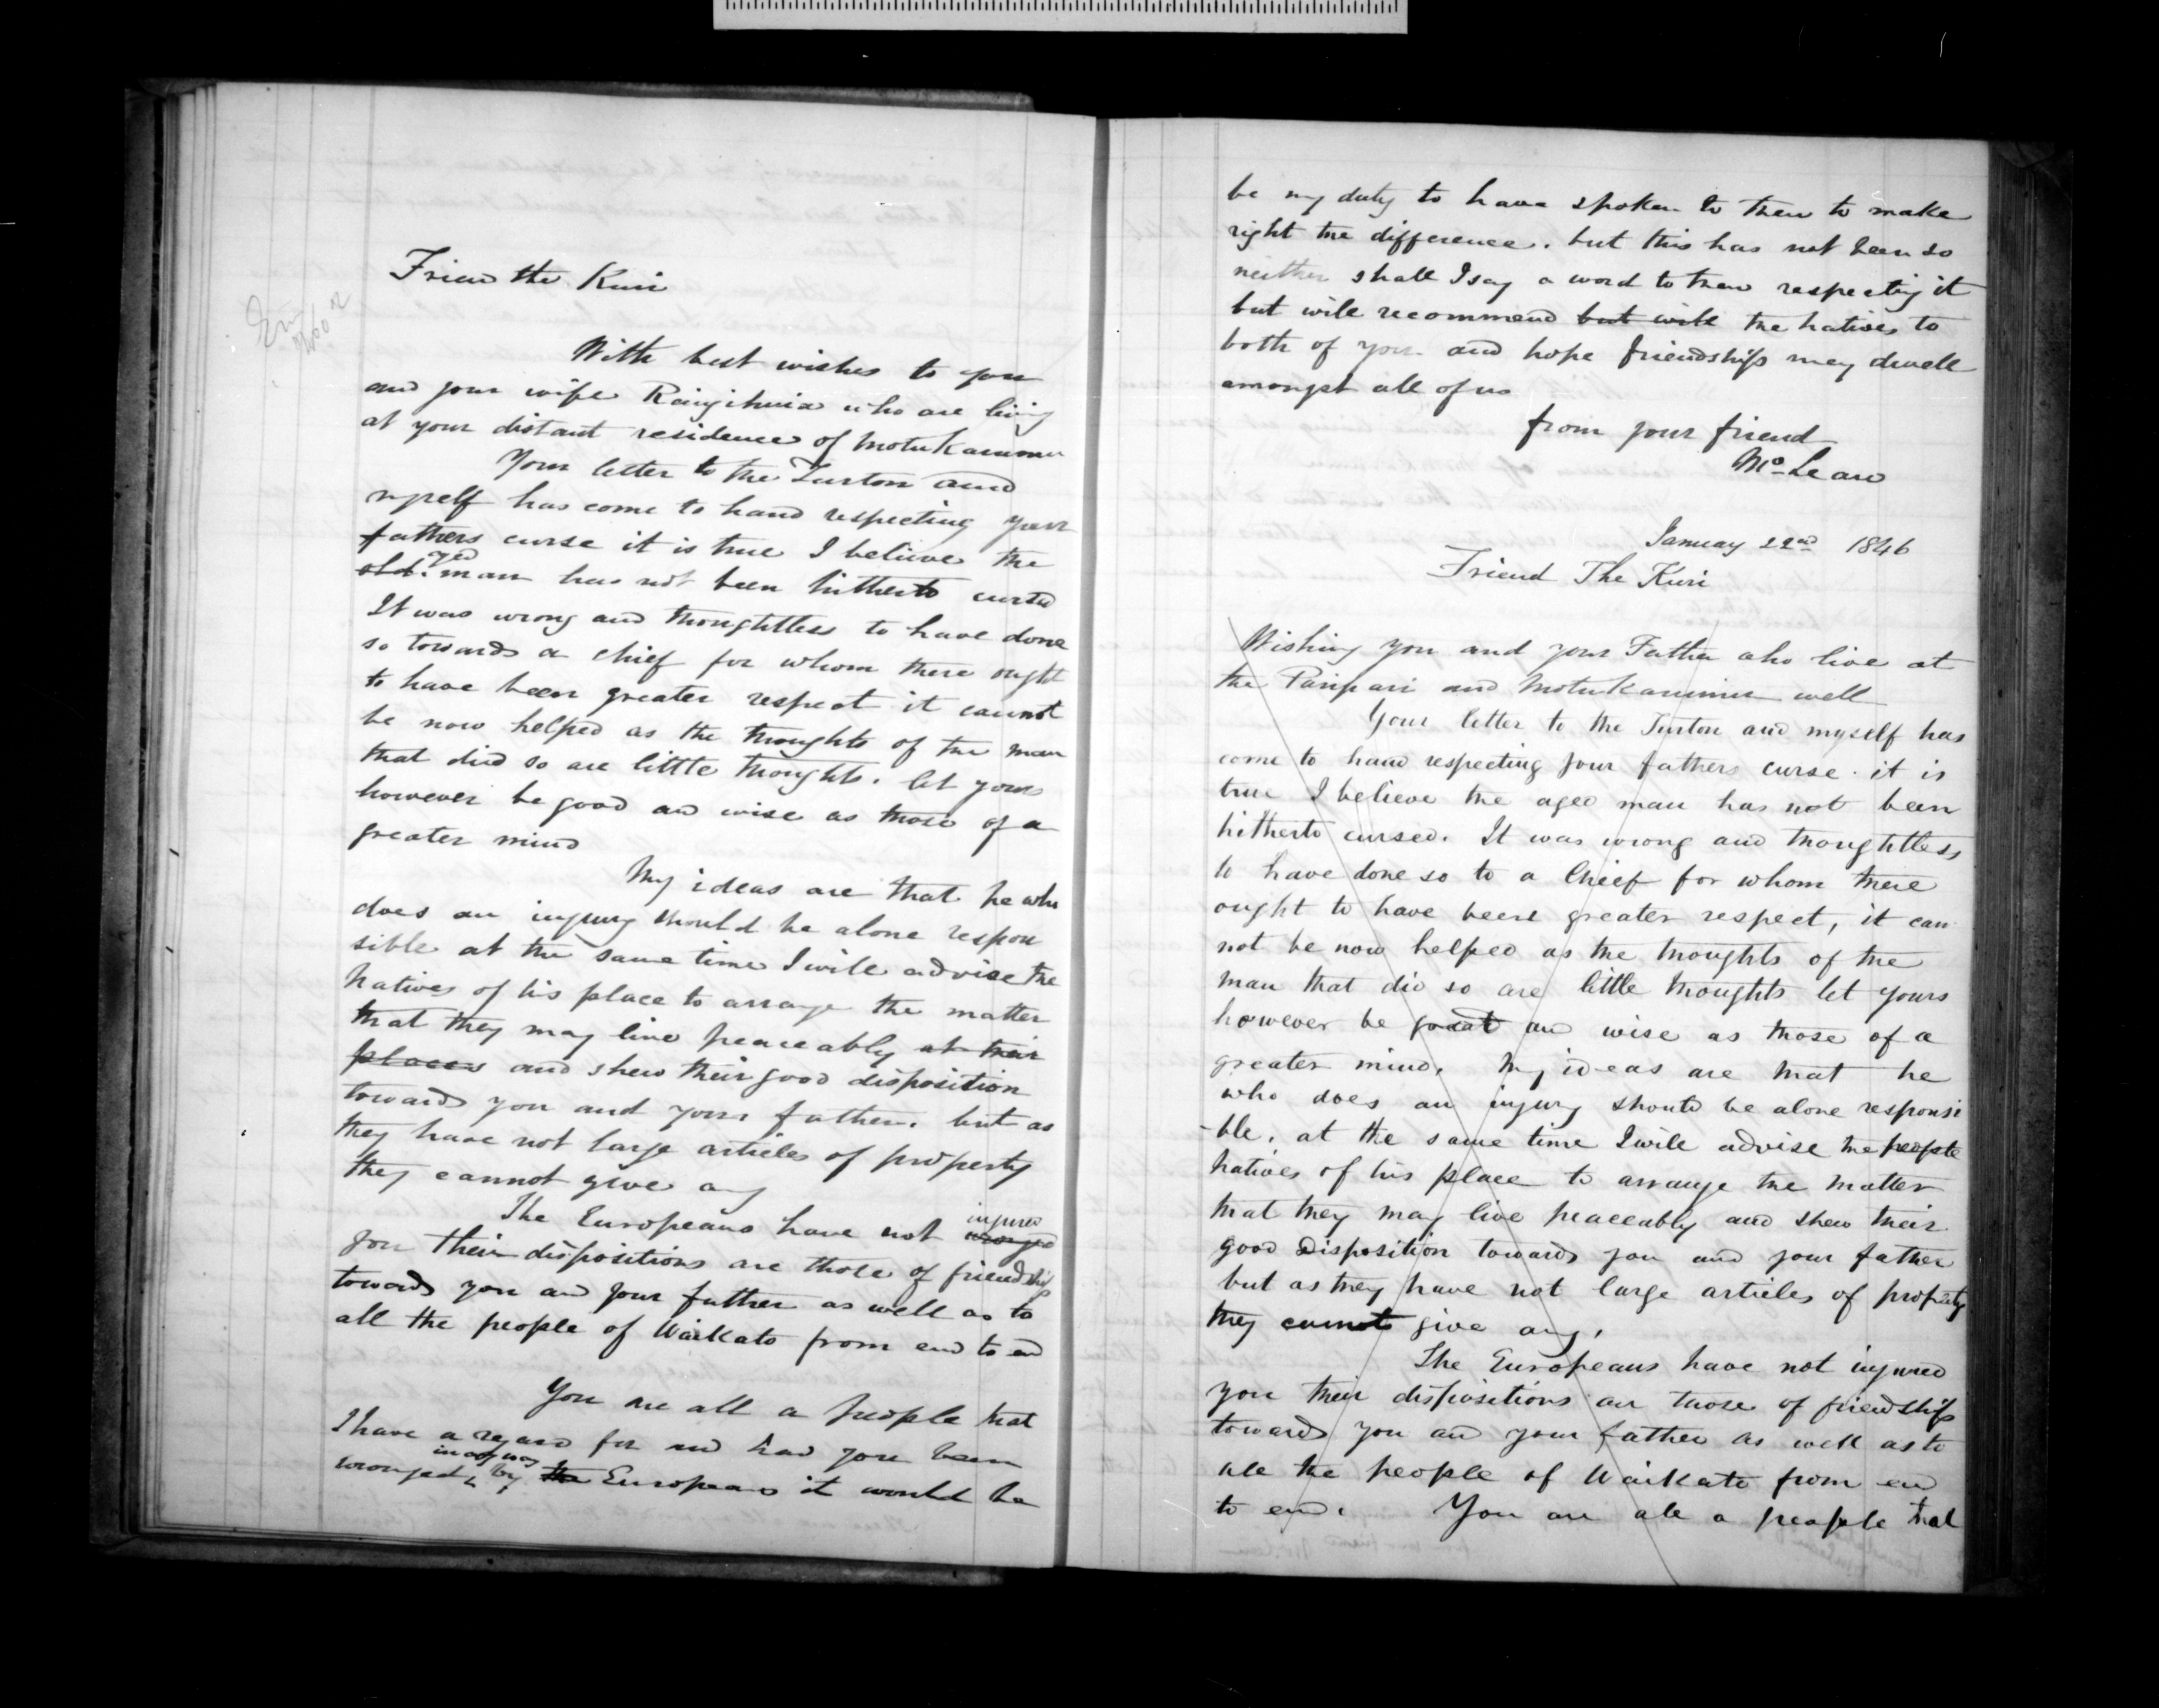 Friend the Kuri
With best wishes to you
and your wife Rangihuia who are living
at your distant residence of MotuKaramu
Your letter to the Turton and
myself has come to hand respecting your
fathers curse it is true I believe the
old. ged man has not been hitherto cursed
It was wrong and thoughtless to have done
so towards a chief for whom there ought
to have been greater respect it cannot
be now helped as the thoughts of the man
that did so are little thoughts. let yours
however be good and wise as those of a
greater mind
My ideas are that he who
does an injury should be alone respon
sible at the same time I will advise the
natives of his place to arrange the matter
that they may live peaceably at their
places and shew their good disposition
towards you and your father. but as
they have not large articles of property
they cannot give any
The Europeans have not wronged injured
you their dispositions are those of friendship
towards you and your father as well as to
all the people of Waikato from end to end
You are all a people that
I have a regard for and had you been
wronged in any way by the Europeans it would be
be my duty to have spoken to them to make
right the difference. but this has not been so
neither shall I say a word to them respecting it
but will recommend but will the natives to
both of you and hope friendship may dwell
amongst all of us
from your friend
McLean
January 22nd 1846
Friend The Kuri
Wishing you and your Father who live at
the Paripari and MotuKaramu well
Your letter to the Turton and myself has
come to hand respecting your fathers curse. it is
true I believe the aged man has not been
hitherto cursed. It was wrong and thoughtless
to have done so to a Chief for whom there
ought to have been greater respect, it can
not be now helped as the thoughts of the
man that did so are little thoughts let yours
however be good and wise as those of a
greater mind. My ideas are that he
who does an injury should be alone responsi
-ble. at the same time I will advise the people
natives of his place to arrange the matter
that they may live peaceably and shew their
good disposition towards you and your father
but as they have not large articles of property
they cannot give any.
The Europeans have not injured
you their dispositions are those of friendship
towards you and your father as well as to
all the people of Waikato from end
to end. You are all a people that